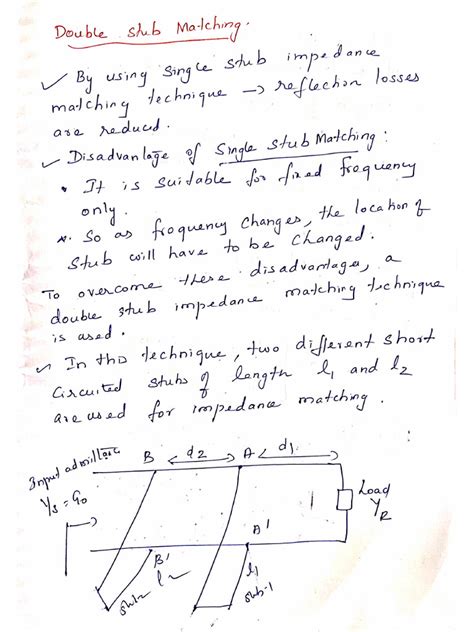 Double stub Matching.
✓ By using single stub impedance
matching technique → reflection losses
are reduced.
✓ Disadvantage of single stub Matching:
• It is suitable for fixed frequency
only.
*. So as frequency changes, the location of
stub will have to be changed.
To overcome these disadvantages, a
double stub impedance matching technique
is used.
✓ In this technique, two different short
circuited stubs of length l1 and l2
are used for impedance matching.
Input admittance B d2 A d1
Ys = G0
Load
YR
B' A'
l2 l1
stub-2 stub-1